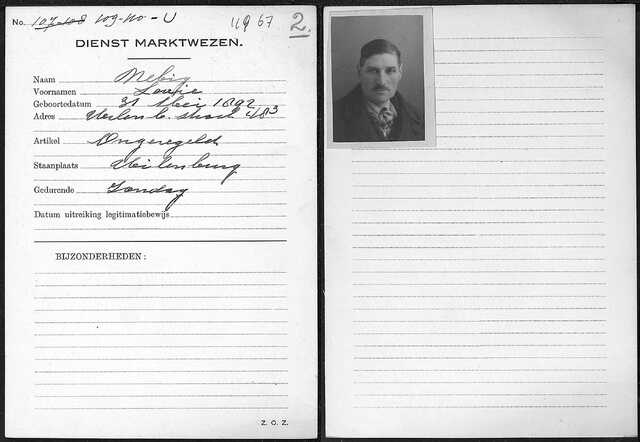 No. 107-108 109-110-U 119 67 2.
DIENST MARKTWEZEN.
Naam Melrig
Voornamen Louis
Geboortedatum 31 Mei 1892
Adres
Artikel Ongeregeld
Staanplaats Uilenburg
Gedurende Zondag
Datum uitreiking legitimatiebewijs
BIJZONDERHEDEN:
Z. O. Z.